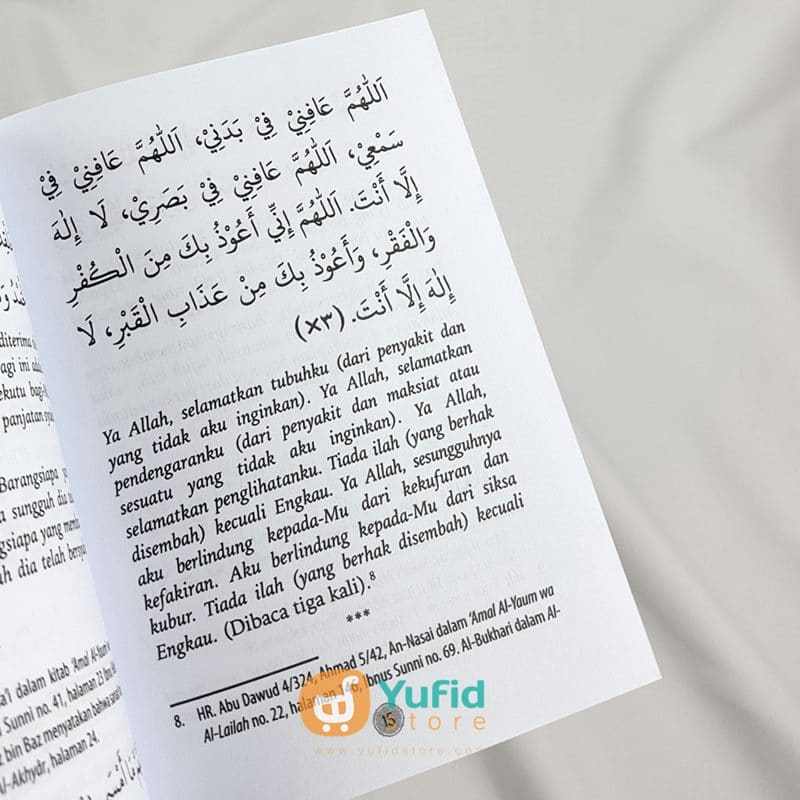 اَللّٰهُمَّ عَافِنِيْ فِيْ بَدَنِيْ، اَللّٰهُمَّ عَافِنِيْ فِيْ
سَمْعِيْ، اَللّٰهُمَّ عَافِنِيْ فِيْ بَصَرِيْ، لَا إِلٰهَ
إِلَّا أَنْتَ. اَللّٰهُمَّ إِنِّي أَعُوْذُ بِكَ مِنَ الْكُفْرِ
وَالْفَقْرِ، وَأَعُوْذُ بِكَ مِنْ عَذَابِ الْقَبْرِ، لَا
إِلٰهَ إِلَّا أَنْتَ. (٣×)
Ya Allah, selamatkan tubuhku (dari penyakit dan
yang tidak aku inginkan). Ya Allah, selamatkan
pendengaranku (dari penyakit dan maksiat atau
sesuatu yang tidak aku inginkan). Ya Allah,
selamatkan penglihatanku. Tiada ilah (yang berhak
disembah) kecuali Engkau. Ya Allah, sesungguhnya
aku berlindung kepada-Mu dari kekufuran dan
kefakiran. Aku berlindung kepada-Mu dari siksa
kubur. Tiada ilah (yang berhak disembah) kecuali
Engkau. (Dibaca tiga kali).⁸
***
8. HR. Abu Dawud 4/324, Ahmad 5/42, An-Nasai dalam 'Amal Al-Yaum wa
Al-Lailah no. 22, halaman 146, Ibnus Sunni no. 69. Al-Bukhari dalam Al-
15
Yufid
Store
www.yufidstore.com
diterima
agi ini
ekutu bagi-
panjatan
Barangsiapa
sungguh dia
gsiapa yang
h dia telah
a'i dalam kitab 'Amal Al-
Sunni no. 41, halaman 23
bin Baz menyatakan bahwa
Al-Akhyâr, halaman 24.